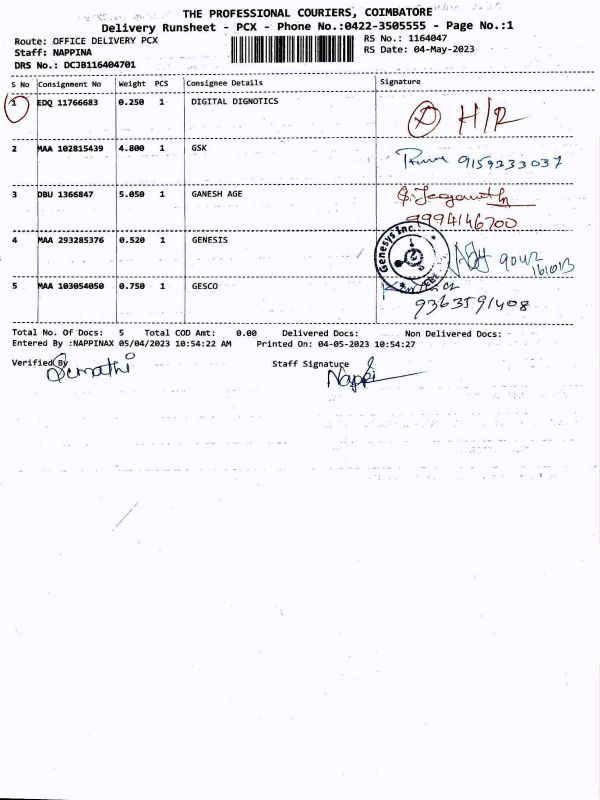 THE PROFESSIONAL COURIERS, COIMBATORE
Delivery Runsheet - PCX - Phone No.:0422-3505555 - Page No.:1
Route: OFFICE DELIVERY PCX RS No.: 1164047
Staff: NAPPINA RS Date: 04-May-2023
DRS No.: DCJB116404701
S No Consignment No Weight PCS Consignee Details Signature
1 EDQ 11766683 0.250 1 DIGITAL DIGNOTICS
D H/R
2 MAA 102815439 4.800 1 GSK
9159233037
3 DBU 1366847 5.050 1 GANESH AGE
9994146700
4 MAA 293285376 0.520 1 GENESIS
Genesys Inc.
5 MAA 103054050 0.750 1 GESCO
9363591408
Total No. Of Docs: 5 Total COD Amt: 0.00 Delivered Docs: Non Delivered Docs:
Entered By :NAPPINAX 05/04/2023 10:54:22 AM Printed On: 04-05-2023 10:54:27
Verified By Staff Signature
Nappi